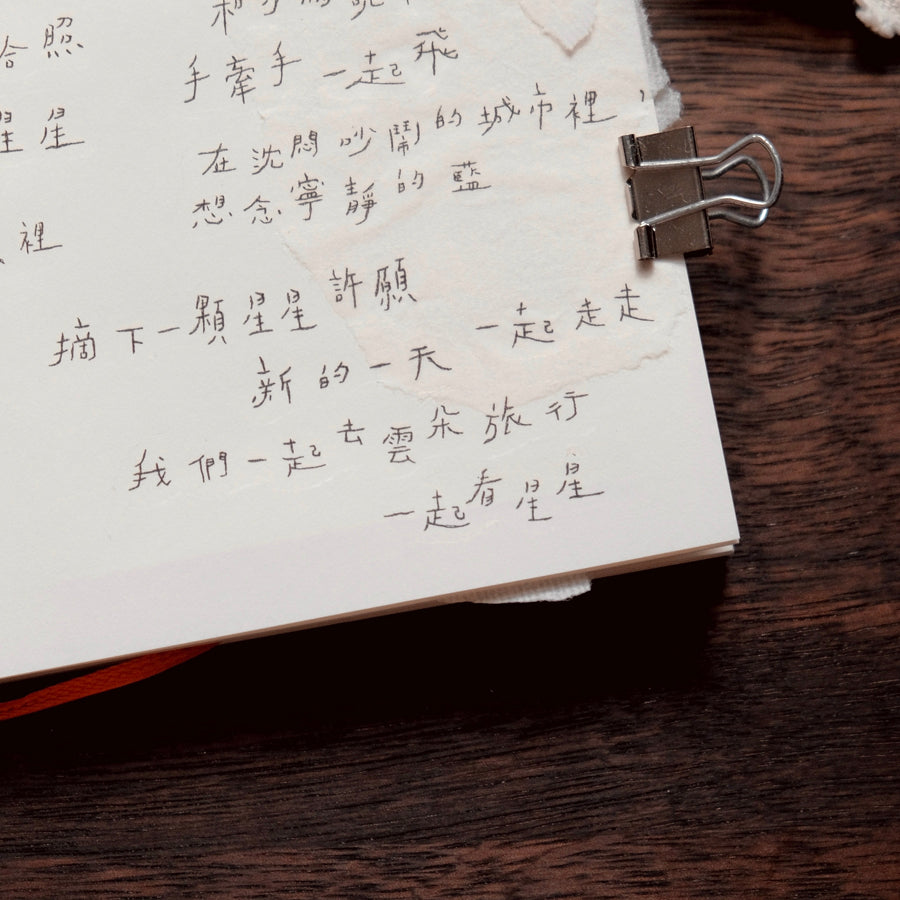 合照
星星
裡
手牽手 一起飛
在沈悶吵鬧的城市裡，
想念寧靜的藍
摘下一顆星星許願
新的一天 一起走走
我們一起去雲朵旅行
一起看星星